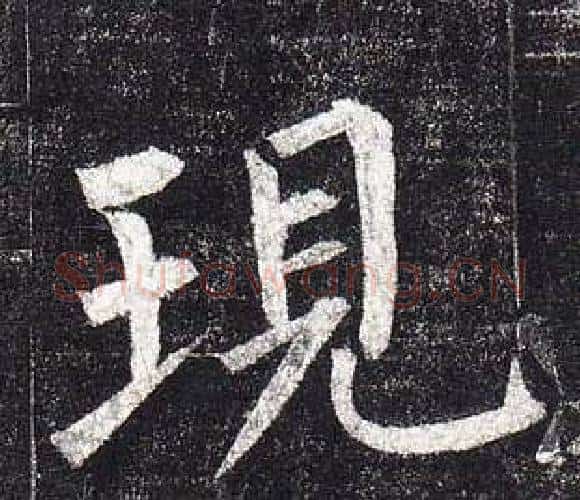 現
Shufawang.CN